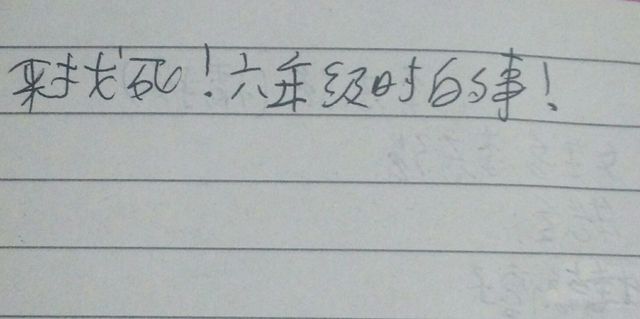 来找死！六年级时的事！